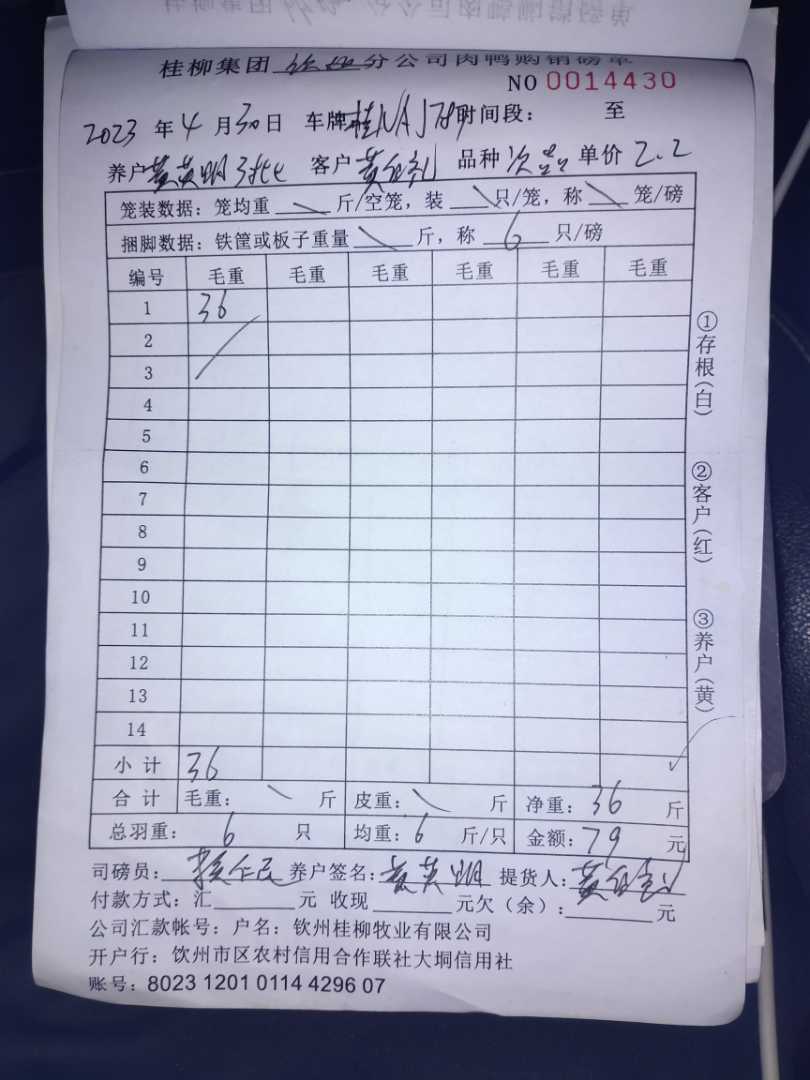 桂柳集团 钦州 分公司肉鸭购销磅单
NO 0014430
2023 年 4 月 30 日 车牌: 桂NAJ 时间段: 至
养户 黄英明 客户 黄 品种 次品 单价 2.2
笼装数据: 笼均重 \ 斤/空笼, 装 \ 只/笼, 称 \ 笼/磅
捆脚数据: 铁筐或板子重量 \ 斤, 称 6 只/磅
编号 毛重 毛重 毛重 毛重 毛重 毛重
1 36
2
3
4
5
6
7
8
9
10
11
12
13
14
小计 36
合计 毛重: \ 斤 皮重: \ 斤 净重: 36 斤
总羽重: 6 只 均重: 6 斤/只 金额: 79 元
司磅员: 养户签名: 黄英明 提货人: 黄
付款方式: 汇 元 收现 元欠(余): 元
公司汇款帐号: 户名: 钦州桂柳牧业有限公司
开户行: 钦州市区农村信用合作联社大垌信用社
账号: 8023 1201 0114 4296 07
①存根(白)
②客户(红)
③养户(黄)